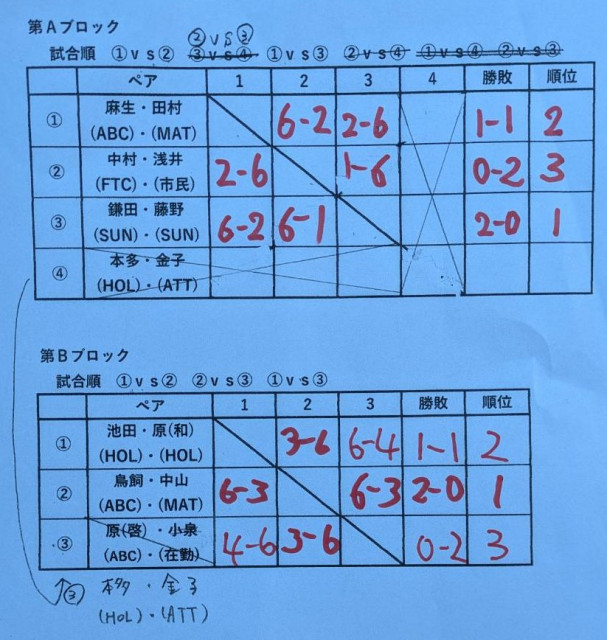 第Aブロック
②vs③
試合順 ①vs② ③vs④ ①vs③ ②vs④ ①vs④ ②vs③
ペア 1 2 3 4 勝敗 順位
① 麻生・田村 (ABC)・(MAT) 6-2 2-6 1-1 2
② 中村・浅井 (FTC)・(市民) 2-6 1-6 0-2 3
③ 鎌田・藤野 (SUN)・(SUN) 6-2 6-1 2-0 1
④ 本多・金子 (HOL)・(ATT)
第Bブロック
試合順 ①vs② ②vs③ ①vs③
ペア 1 2 3 勝敗 順位
① 池田・原(和) (HOL)・(HOL) 3-6 6-4 1-1 2
② 鳥飼・中山 (ABC)・(MAT) 6-3 6-3 2-0 1
③ 原(啓)・小泉 (ABC)・(在勤) 4-6 3-6 0-2 3
③ 本多・金子
(HOL)・(ATT)